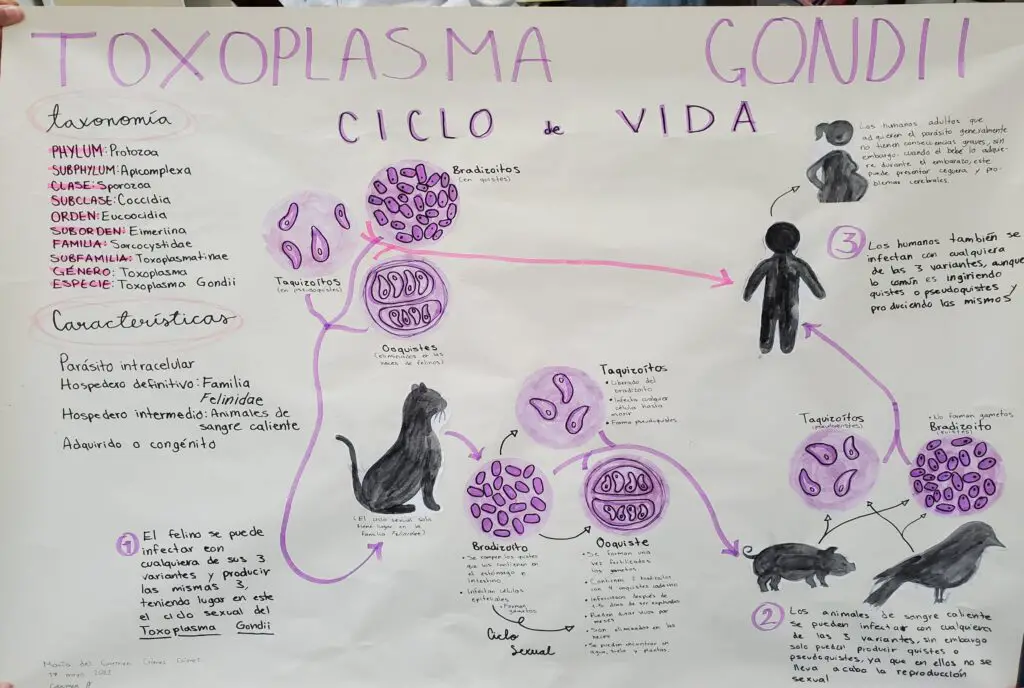 TOXOPLASMA GONDII
CICLO de VIDA
taxonomía
PHYLUM: Protozoa
SUBPHYLUM: Apicomplexa
CLASE: Sporozoa
SUBCLASE: Coccidia
ORDEN: Eucoocidia
SUBORDEN: Eimeriina
FAMILIA: Sarcocystidae
SUBFAMILIA: Toxoplasmatinae
GÉNERO: Toxoplasma
ESPECIE: Toxoplasma Gondii
Características
Parásito intracelular
Hospedero definitivo: Familia
Felinidae
Hospedero intermedio: Animales de
sangre caliente
Adquirido o congénito
1 El felino se puede
infectar con
cualquiera de sus 3
variantes y producir
las mismas 3,
teniendo lugar en este
el ciclo sexual del
Toxoplasma Gondii
Bradizoitos
(en quistes)
Taquizoítos
(en pseudoquistes)
Ooquistes
(eliminados en las
heces de felinos)
(El ciclo sexual solo
tiene lugar en la
familia Felinidae)
Bradizoito
• Se rompen los quistes
que los contienen en
el estómago o
intestino
• Infectan células
epiteliales
• Forman
gametos
Ciclo
Sexual
Taquizoítos
• Liberado del
bradizoito
• Infecta cualquier
célula hasta
morir
• Forma pseudoquistes
Ooquiste
• Se forman una
vez fertilizados
los gametos
• Contienen 2
con 4
después de
1-5 días de ser expulsados
• Pueden durar vivos por
meses
• Son eliminados en las
heces
• Se pueden encontrar en
agua, suelo y plantas.
Los humanos adultos que
adquieren el parásito generalmente
no tienen consecuencias graves, sin
embargo, cuando el bebé lo adquie-
re durante el embarazo, este
puede presentar ceguera y pro-
blemas cerebrales.
3 Los humanos también se
infectan con cualquiera
de las 3 variantes, aunque
lo común es ingiriendo
quistes o pseudoquistes y
produciendo las mismos
Taquizoítos
(pseudoquistes)
• No forman gametos
Bradizoito
(quistes)
2 Los animales de sangre caliente
se pueden infectar con cualquiera
de las 3 variantes, sin embargo
solo pueden producir quistes o
pseudoquistes, ya que en ellos no se
lleva acabo la reproducción
sexual
del Carmen
mayo